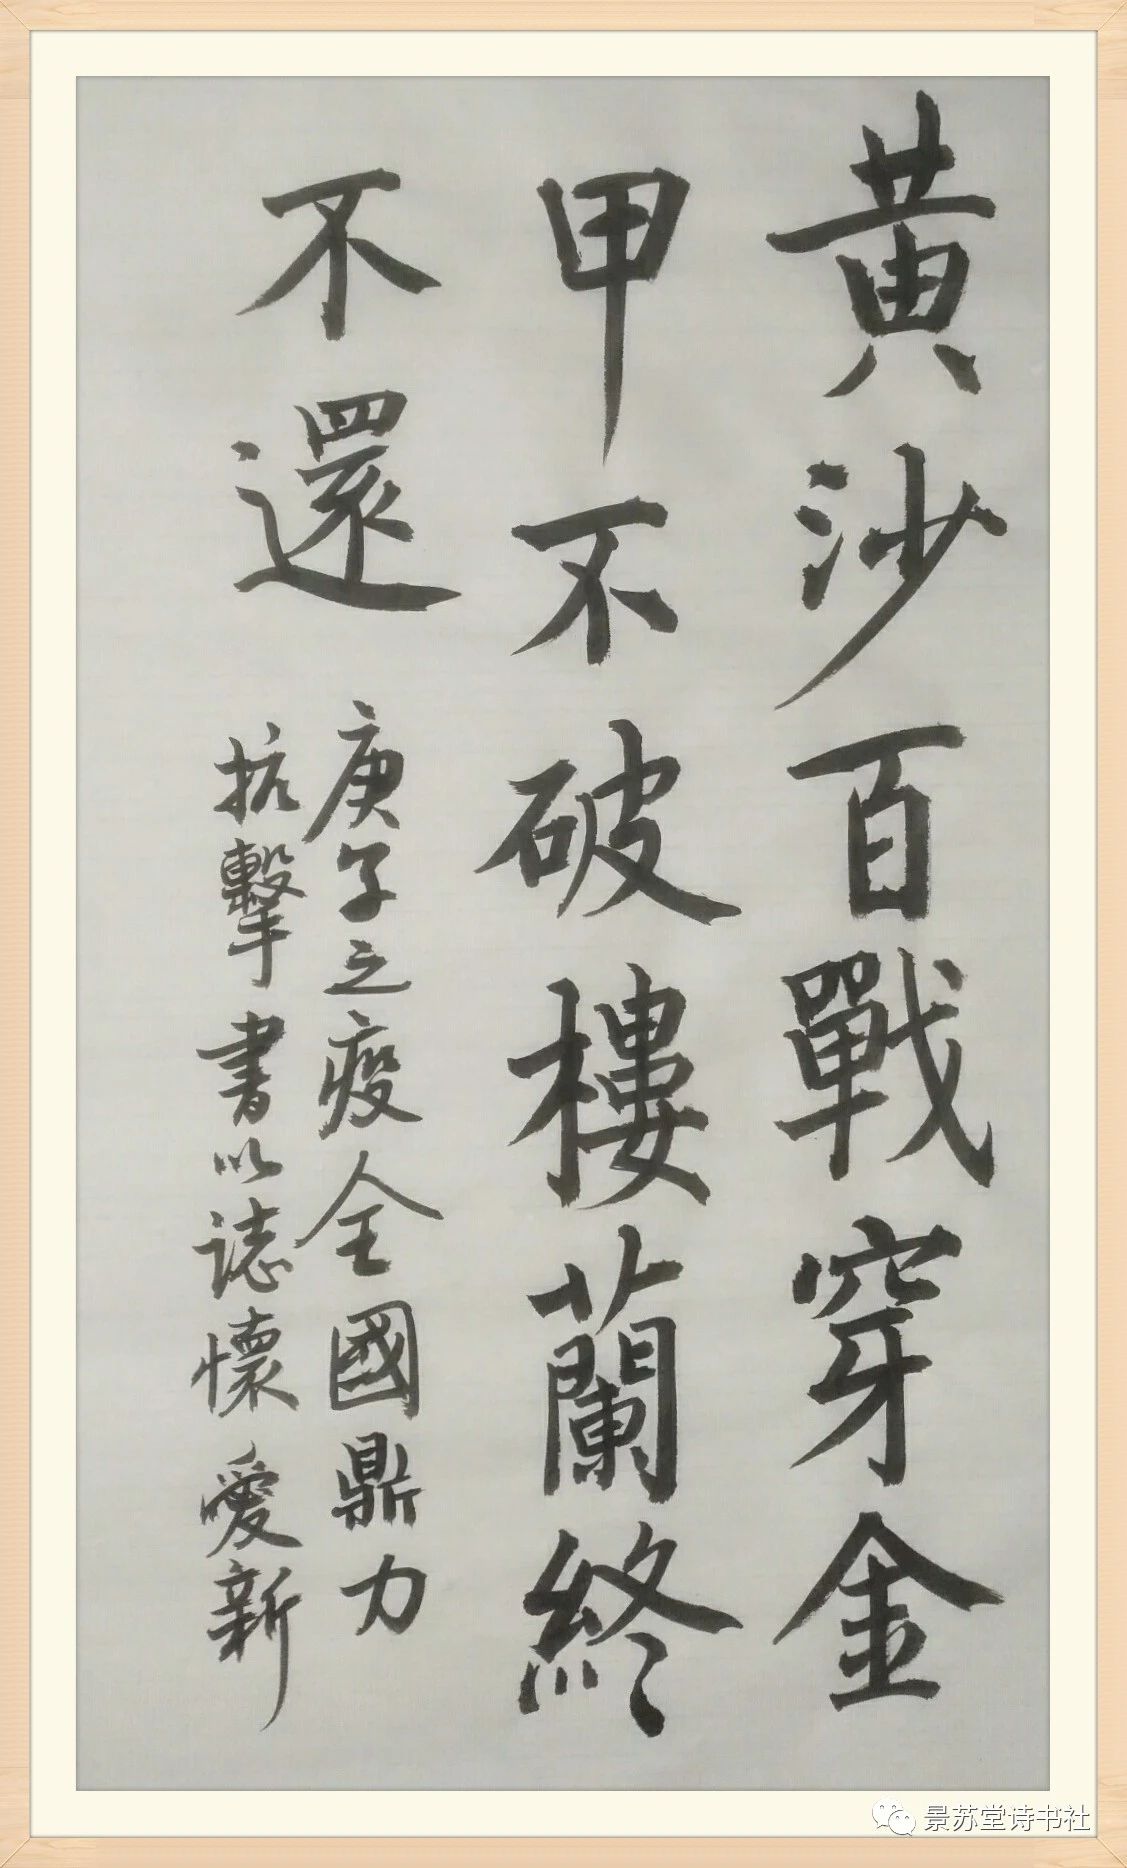 黄沙百戰穿金
甲不破樓蘭終
不還
庚子之疫全國鼎力
抗擊書以誌懷愛新
景苏堂诗书社